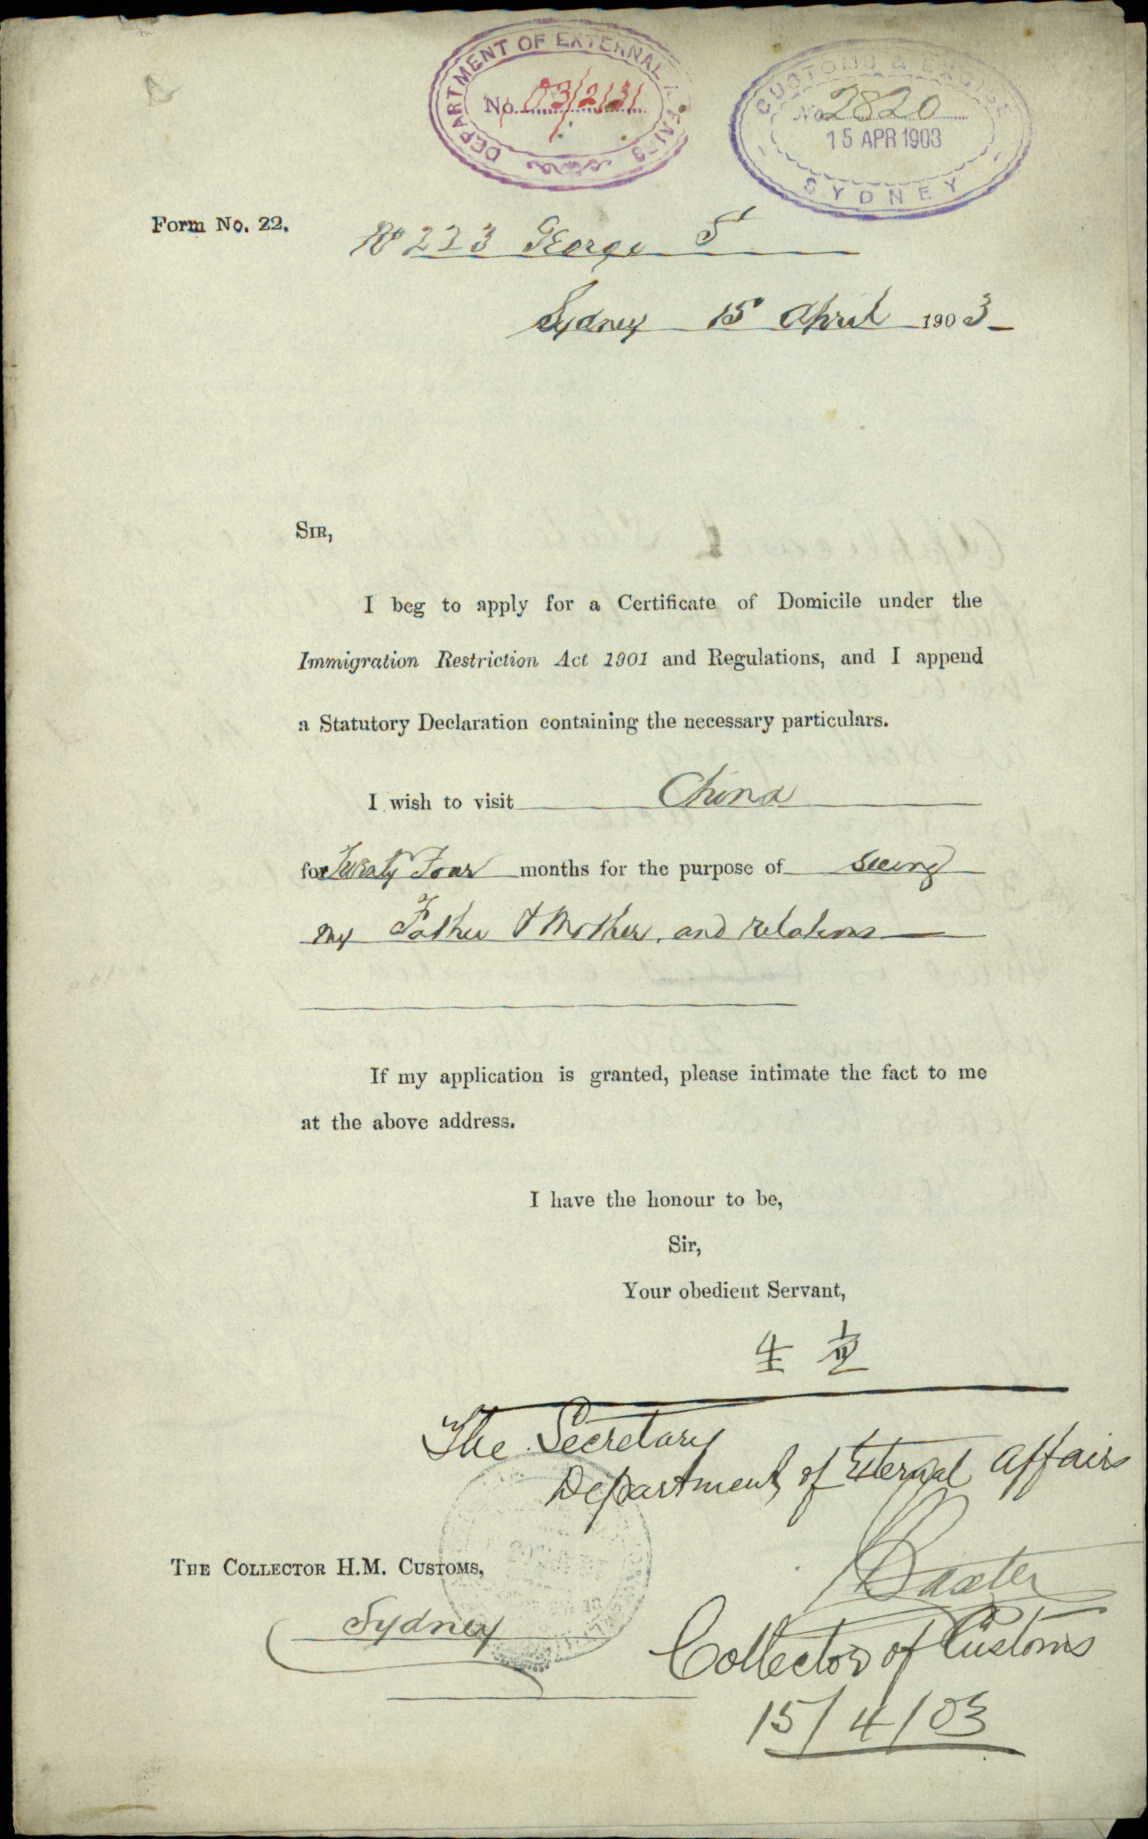 DEPARTMENT OF EXTERNAL AFFAIRS
No. 03/2131
CUSTOMS & EXCISE
No. 2820
15 APR 1903
SYDNEY
Form No. 22.
No 223 George St
Sydney 15 April 1903
SIR,
I beg to apply for a Certificate of Domicile under the
Immigration Restriction Act 1901 and Regulations, and I append
a Statutory Declaration containing the necessary particulars.
I wish to visit China
for Twenty Four months for the purpose of seeing
my Father & Mother, and relations
If my application is granted, please intimate the fact to me
at the above address.
I have the honour to be,
Sir,
Your obedient Servant,
生
The Secretary
Department of External Affairs
THE COLLECTOR H.M. CUSTOMS,
Sydney
Baxter
Collector of Customs
15/4/03